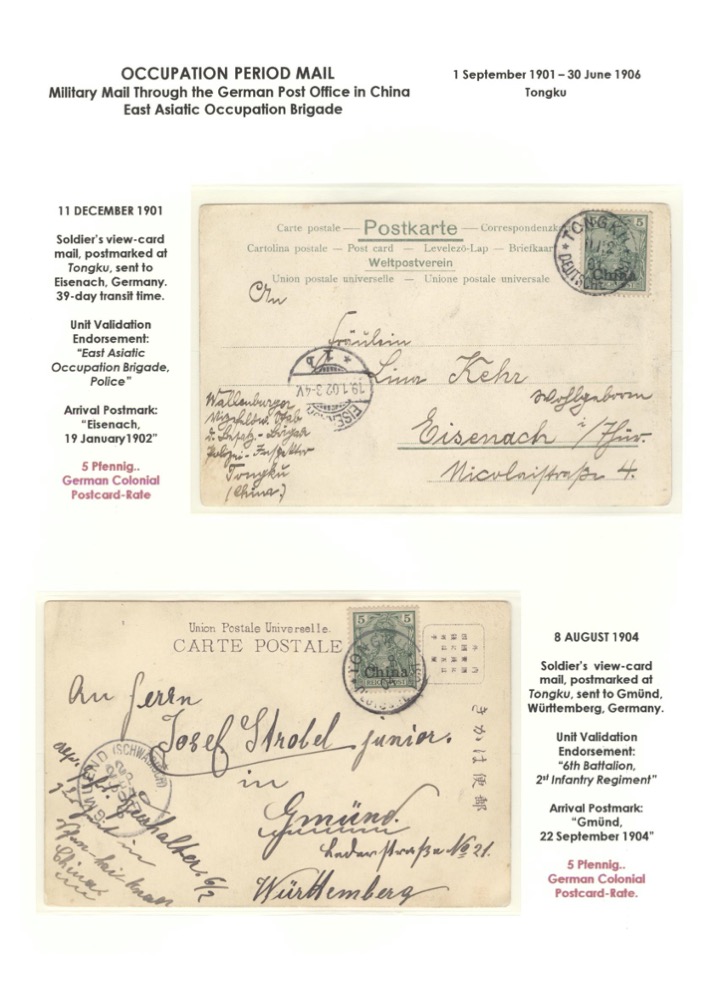 OCCUPATION PERIOD MAIL
Military Mail Through the German Post Office in China
East Asiatic Occupation Brigade
1 September 1901 – 30 June 1906
Tongku
11 DECEMBER 1901
Soldier's view-card
mail, postmarked at
Tongku, sent to
Eisenach, Germany.
39-day transit time.
Unit Validation
Endorsement:
"East Asiatic
Occupation Brigade,
Police"
Arrival Postmark:
"Eisenach,
19 January1902"
5 Pfennig..
German Colonial
Postcard-Rate
Carte postale — Postkarte — Correspondenzk
Cartolina postale — Post card — Levelező-Lap — Briefkaar
Weltpostverein
Union postale universelle — Unione postale universale
TONGKU
5
China
An
Fräulein
Lina Kehr
Wohlgeboren
Eisenach i/Thür.
Nicolaistraße 4.
19.1.02.3-4V.
Wallenburger
Polizei-Inspektor
Tongku
(China)
Union Postale Universelle.
CARTE POSTALE
5 5
China
REICHSPOST
TONGKU
きかは便郵
An Herrn
Josef Strobel junior.
in
Gmünd.
Lederstraße No 21.
Württemberg
GMUEND (SCHWAEBISCH)
6/2
in
China
8 AUGUST 1904
Soldier's view-card
mail, postmarked at
Tongku, sent to Gmünd,
Württemberg, Germany.
Unit Validation
Endorsement:
"6th Battalion,
2st Infantry Regiment"
Arrival Postmark:
"Gmünd,
22 September 1904"
5 Pfennig..
German Colonial
Postcard-Rate.